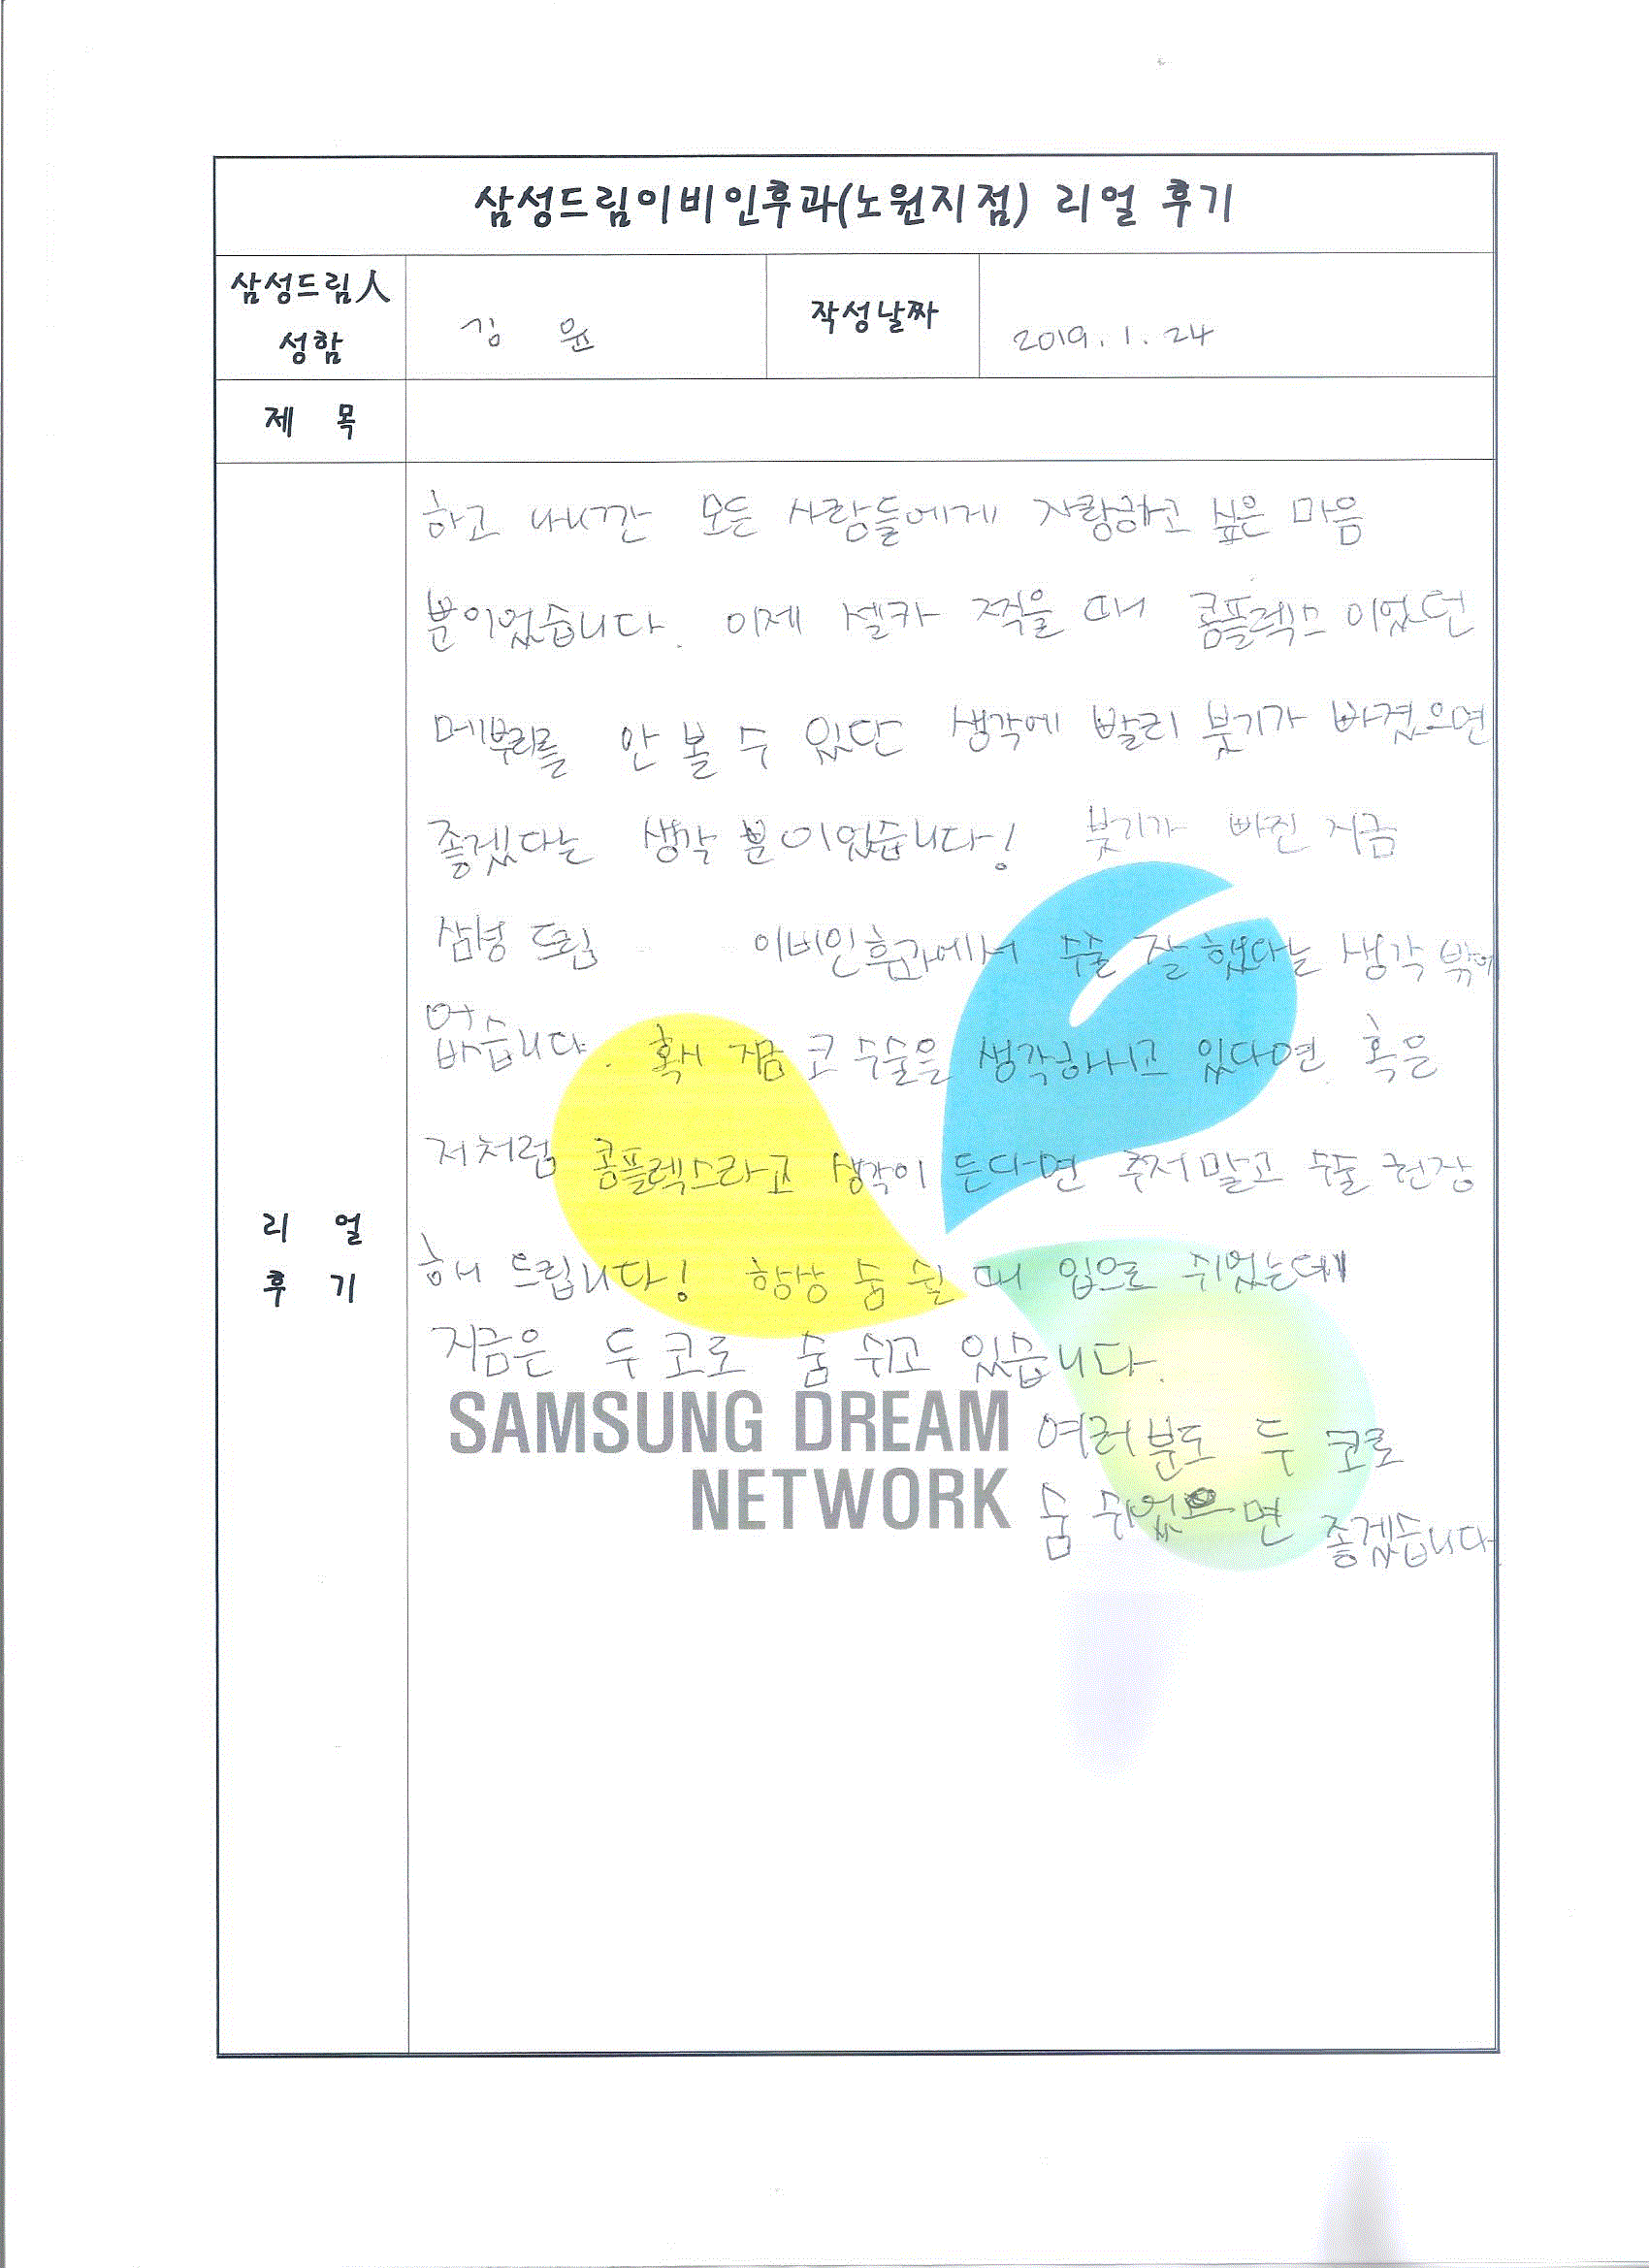 삼성드림이비인후과(노원지점) 리얼 후기
삼성드림人
성함
김 윤
작성날짜
2019. 1. 24
제 목
리 얼
후 기
하고 내니깐 모든 사람들에게 자랑하고 싶은 마음
뿐이었습니다. 이제 셀카 찍을 때 콤플렉스 이었던
메부리를 안 볼 수 있단 생각에 빨리 붓기가 빠졌으면
좋겠다는 생각 뿐이었습니다! 붓기가 빠진 지금
삼성 드림 이비인후과에서 수술 잘 했다는 생각 밖에
없습니다. 혹시 지금 코 수술은 생각하시고 있다면 혹은
저처럼 콤플렉스라고 생각이 든다면 주저말고 수술 권장
해 드립니다! 항상 숨 쉴 때 입으로 쉬었는데
지금은 두 코로 숨 쉬고 있습니다.
여러분도 두 코로
숨 쉬었으면 좋겠습니다
SAMSUNG DREAM
NETWORK